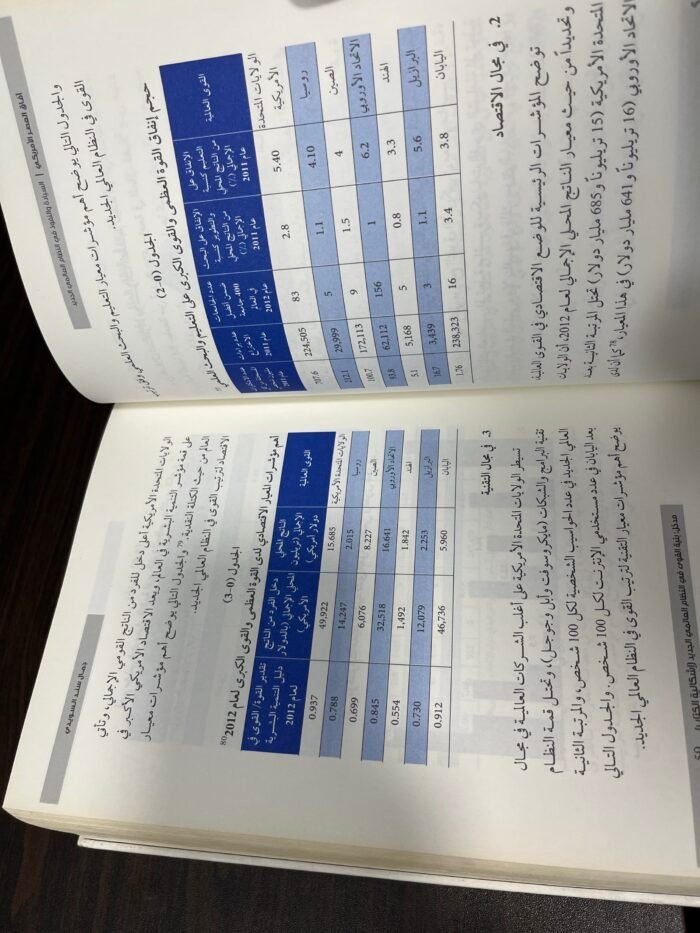 آفاق العصر الأمريكي | السيادة والنفوذ في النظام العالمي الجديد
والجدول التالي يوضح أهم مؤشرات معيار التعليم والبحث العلمي
القوى في النظام العالمي الجديد.
الجدول (0-2)
حجم إنفاق القوة العظمى والقوى الكبرى على التعليم والبحث العلمي
القوى العالمية | الإنفاق على التعليم كنسبة من الناتج المحلي الإجمالي (٪) عام 2011 | الإنفاق على البحث والتطوير كنسبة من الناتج المحلي الإجمالي (٪) عام 2011 | عدد الجامعات ضمن أفضل 400 جامعة في العالم 2012 | عدد براءات الاختراع عام 2011
الولايات المتحدة الأمريكية | 5.40 | 2.8 | 83 | 224,505 | 707.6
روسيا | 4.10 | 1.1 | 5 | 29,999 | 212.1
الصين | 4 | 1.5 | 9 | 172,113 | 100.7
الاتحاد الأوروبي | 6.2 | 1 | 156 | 62,112 | 93.8
الهند | 3.3 | 0.8 | 5 | 5,168 | 5.1
البرازيل | 5.6 | 1.1 | 3 | 3,439 | 16.7
اليابان | 3.8 | 3.4 | 16 | 238,323 | 1.76
2. في مجال الاقتصاد
توضح المؤشرات الرئيسية للوضع الاقتصادي في القوى العالمية،
وتحديداً من حيث معيار الناتج المحلي الإجمالي لعام 2012، أن الولايات
المتحدة الأمريكية (15 تريليوناً و685 مليار دولار) تحتل المرتبة الثانية بعد
الاتحاد الأوروبي (16 تريليوناً و641 مليار دولار) في هذا المعيار،78 كما أن لدى
جمال سند السويدي
الولايات المتحدة الأمريكية أعلى دخل للفرد من الناتج القومي الإجمالي، وتأتي
على قمة مؤشر التنمية البشرية في العالم، ويعد الاقتصاد الأمريكي الأكبر في
العالم من حيث الكتلة النقدية.79 والجدول التالي يوضح أهم مؤشرات معيار
الاقتصاد لترتيب القوى في النظام العالمي الجديد.
الجدول (0-3)
أهم مؤشرات المعيار الاقتصادي لدى القوة العظمى والقوى الكبرى لعام 2012 80
القوى العالمية | الناتج المحلي الإجمالي (تريليون دولار أمريكي) | دخل الفرد من الناتج المحلي الإجمالي (بالدولار الأمريكي) | تقدير القوة/ القوى في دليل التنمية البشرية لعام 2012
الولايات المتحدة الأمريكية | 15.685 | 49,922 | 0.937
روسيا | 2.015 | 14,247 | 0.788
الصين | 8.227 | 6,076 | 0.699
الاتحاد الأوروبي | 16.641 | 32,518 | 0.845
الهند | 1.842 | 1,492 | 0.554
البرازيل | 2.253 | 12,079 | 0.730
اليابان | 5.960 | 46,736 | 0.912
3. في مجال التقنية
تسيطر الولايات المتحدة الأمريكية على أغلب الشركات العالمية في مجال
تقنية البرامج والشبكات (مايكروسوفت وأبل وجوجل)، وتحتل قمة النظام
العالمي الجديد في عدد الحواسيب الشخصية لكل 100 شخص، والمرتبة الثانية
بعد اليابان في عدد مستخدمي الإنترنت لكل 100 شخص. والجدول التالي
يوضح أهم مؤشرات معيار التقنية لترتيب القوى في النظام العالمي الجديد.
مدخل: بنية القوى في النظام العالمي الجديد